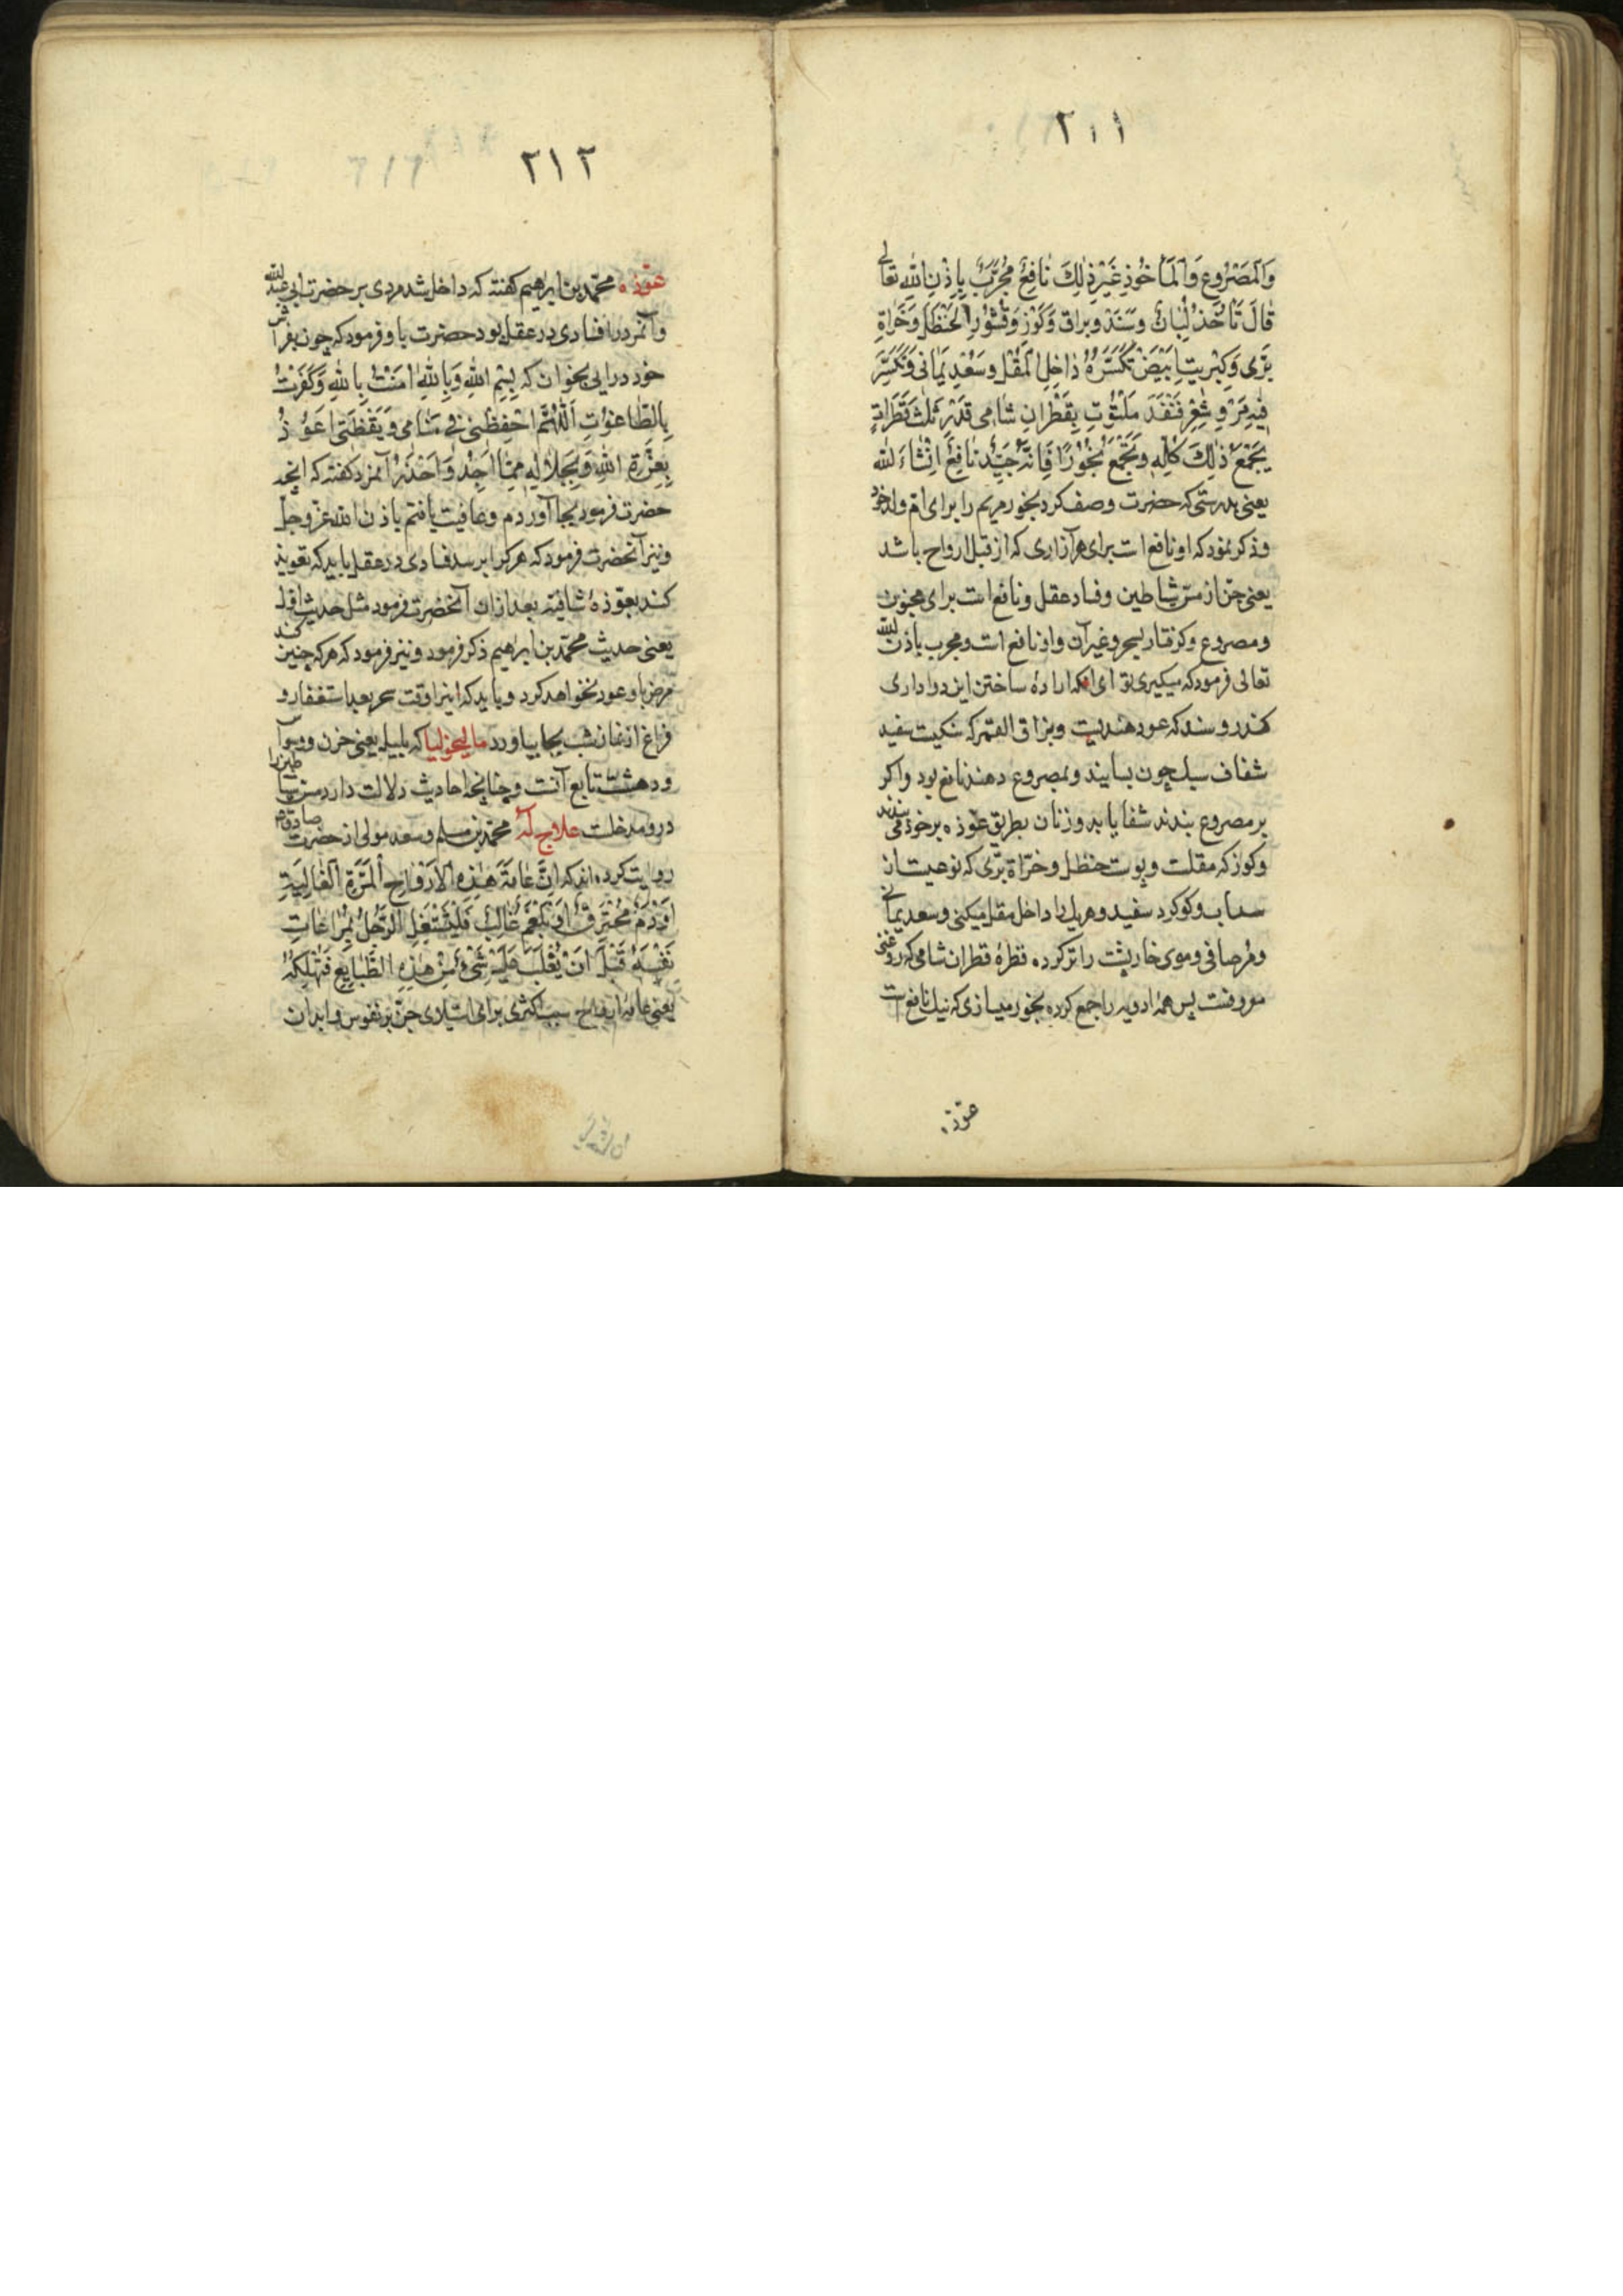 ۲۱۱
وَالْمَصْرُوعِ وَالْمَأْخُوذِ غَيْرِ ذٰلِكَ نٰافِعٌ مُجَرَّبٌ بِاِذْنِ اللّٰهِ تعالی
قٰالَ تَأْخُذُ لُبٰانٌ وَسَنَدَ وبراق وَكَوْزِ وَقُشُوْرِ الْحَنْظَلِ وَخَرٰاةِ
بَرّى وَكِبْرِيتٍا بَيْضَ تُكَسَّرَهُ دٰاخِلِ الْمُقْلِ وسَعْدِ يَمٰانى وَتُكَسَّرَ
فيهِ مَرّ وشَعْرَ قُنْفُدَ مَلْتُوتٍ بِقَطْرٰانِ شٰامى قَدْرَ ثَلٰثَ قَطَرٰاتٍ
يَجْمَعُ ذٰلِكَ كُلِّهِ وَتَجْمَعُ بُخُوْرًا فَاِنَّهُ جَيِّدٌ نٰافِعٌ اِنْشٰاءَ اللّٰه
یعنی بدرستی که حضرت وصف کرد بخور مریم را برای ام ولد خود
و ذکر نمود که او نافع است برای هر آزاری که از قبل ارواح باشد
یعنی جن از مس شیاطین و فساد عقل و نافع است برای مجنون
و مصروع و کرفتار بسحر و غیر آن و او نافع است و مجرب باذن الله
تعالی فرمود که میکیری تو ای آنکه ارادهٔ ساختن این دوا داری
کندر و سند که عود هندیست و بزاق القمر که سنکیست سفید
شفاف سبک چون بسایند و بمصروع دهند نافع بود و اکر
بر مصروع بندند شفا یابد و زنان بطریق عوذه بر خود می بندند
و کوز که مقلست و پوست حنظل و خراة بری که نوعیست از
سداب و کوکرد سفید و هر یک را داخل مقل میکنی و سعد یمانی
و مر صافی و موی خارپشت را تر کرده قطرهٔ قطران شامی که روغنی
سرو فنت پس همهٔ ادویه را جمع کرده بخور میسازی که نیک نافع است
عوذه
۲۱۲
عوذه محمّد بن ابرهیم کفته که داخل شد مردی بر حضرت ابی عبد الله
و آنمرد را فسادی در عقل بود حضرت باو فرمود که چون بفراش
خود درایی بخوان که بِسْمِ اللّٰهِ وَبِاللّٰهِ اٰمَنْتُ بِاللّٰهِ وَكَفَرْتُ
بِالطّٰاغُوْتِ اَللّٰهُمَّ احْفِظْنى فى مَنٰامى وَيَقْظَتى اَعُوْذُ
بِعِزَّةِ اللّٰهِ وَبِجَلٰالِهِ مِمّٰا اَجِدُ وَاَحْذَرُ آنمرد کفته که آنچه
حضرت فرمود بجا آوردم و عافیت یافتم باذن الله عز و جل
و نیز آنحضرت فرمود که هر کرا برسد فسادی در عقل باید که تعویذ
کند بعوذهٔ شافیه بعد از آن آنحضرت فرمود مثل حدیث اول
یعنی حدیث محمّد بن ابرهیم ذکر فرمود و نیز فرمود که هر که چنین کند
مرض باو عود نخواهد کرد و باید که اینرا وقت سحر بعد استغفار و
فراغ از نماز شب بجا بیاورد مالیخولیا که بلبیله یعنی حزن و وسواس
و دهشت تابع آنست و چنانچه احادیث دلالت دارد مس شیاطین را
درو مدخلست علاج له محمّد بن مسلم و سعد مولی از حضرت صادق ع
روایت کرده اند که اِنَّ عٰامَةَ هٰذِهِ الْاَرْوٰاحِ الْمَرَّةِ الْغٰالِبَةِ
اَوْ دَمٌ مُحْتَرِقٌ اَوْ بَلْغَمٌ غٰالِبٌ فَلْيَشْتَغِلِ الرَّجُلُ بِمُرٰاعٰاتِ
نَفْسِهِ قَبْلَ اَنْ يَغْلَبَ عَلَيْهِ شَىْءٌ مِنْ هٰذِهِ الطَّبٰايِعِ فَتُهْلِكَهُ
یعنی عامهٔ ارواح سبب اکثری برای استیلای جن بر نفوس و ابدان